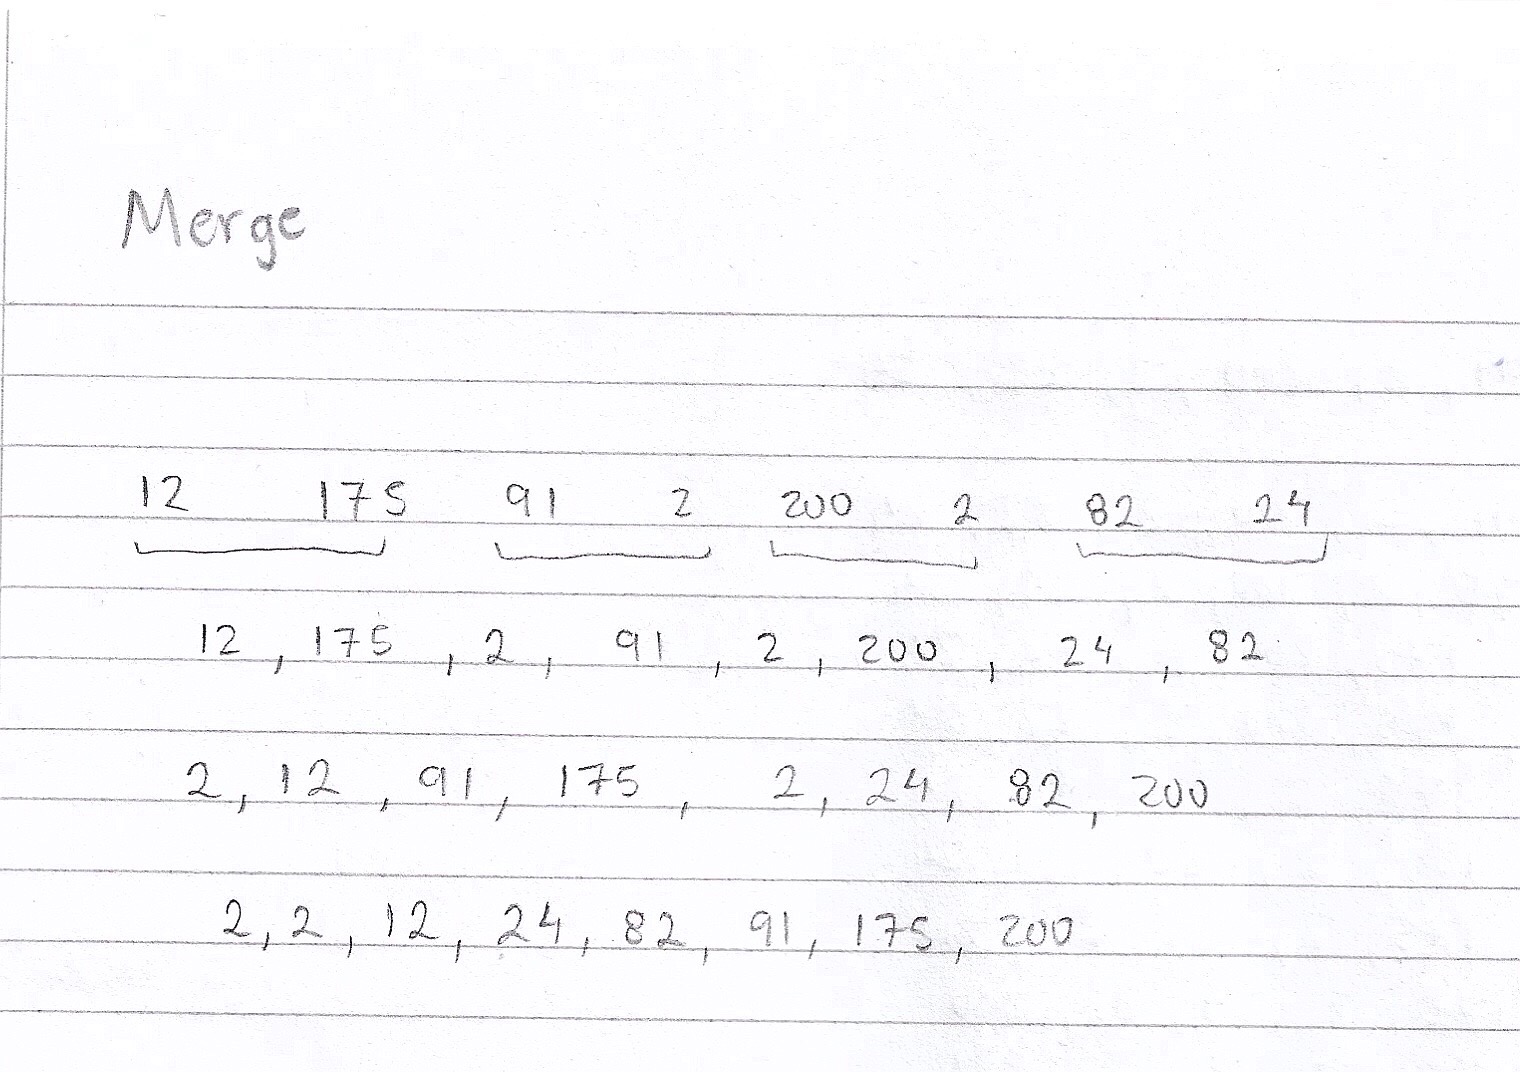 Merge
12 175 91 2 200 2 82 24
12 , 175 , 2 , 91 , 2 , 200 , 24 , 82
2 , 12 , 91 , 175 , 2 , 24 , 82 , 200
2 , 2 , 12 , 24 , 82 , 91 , 175 , 200